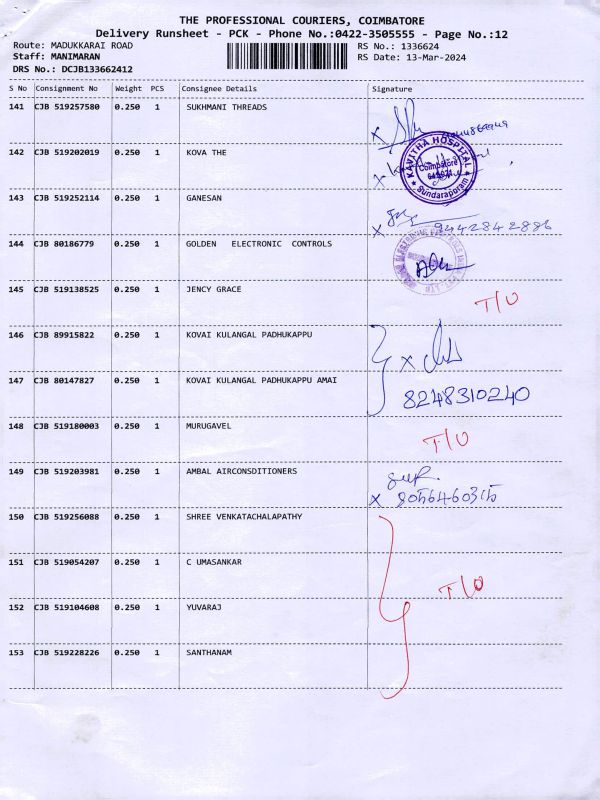 THE PROFESSIONAL COURIERS, COIMBATORE
Delivery Runsheet - PCK - Phone No.:0422-3505555 - Page No.:12
Route: MADUKKARAI ROAD
RS No.: 1336624
Staff: MANIMARAN
RS Date: 13-Mar-2024
DRS No.: DCJB133662412
S No Consignment No Weight PCS Consignee Details Signature
141 CJB 519257580 0.250 1 SUKHMANI THREADS
142 CJB 519202019 0.250 1 KOVA THE
KAVITHA HOSPITAL
Coimbatore
Sundarapuram
143 CJB 519252114 0.250 1 GANESAN
x 9442842886
144 CJB 80186779 0.250 1 GOLDEN ELECTRONIC CONTROLS
145 CJB 519138525 0.250 1 JENCY GRACE
T/O
146 CJB 89915822 0.250 1 KOVAI KULANGAL PADHUKAPPU
x
147 CJB 80147827 0.250 1 KOVAI KULANGAL PADHUKAPPU AMAI
8248310240
148 CJB 519180003 0.250 1 MURUGAVEL
T/O
149 CJB 519203981 0.250 1 AMBAL AIRCONSDITIONERS
x
150 CJB 519256088 0.250 1 SHREE VENKATACHALAPATHY
151 CJB 519054207 0.250 1 C UMASANKAR
T/O
152 CJB 519104608 0.250 1 YUVARAJ
153 CJB 519228226 0.250 1 SANTHANAM